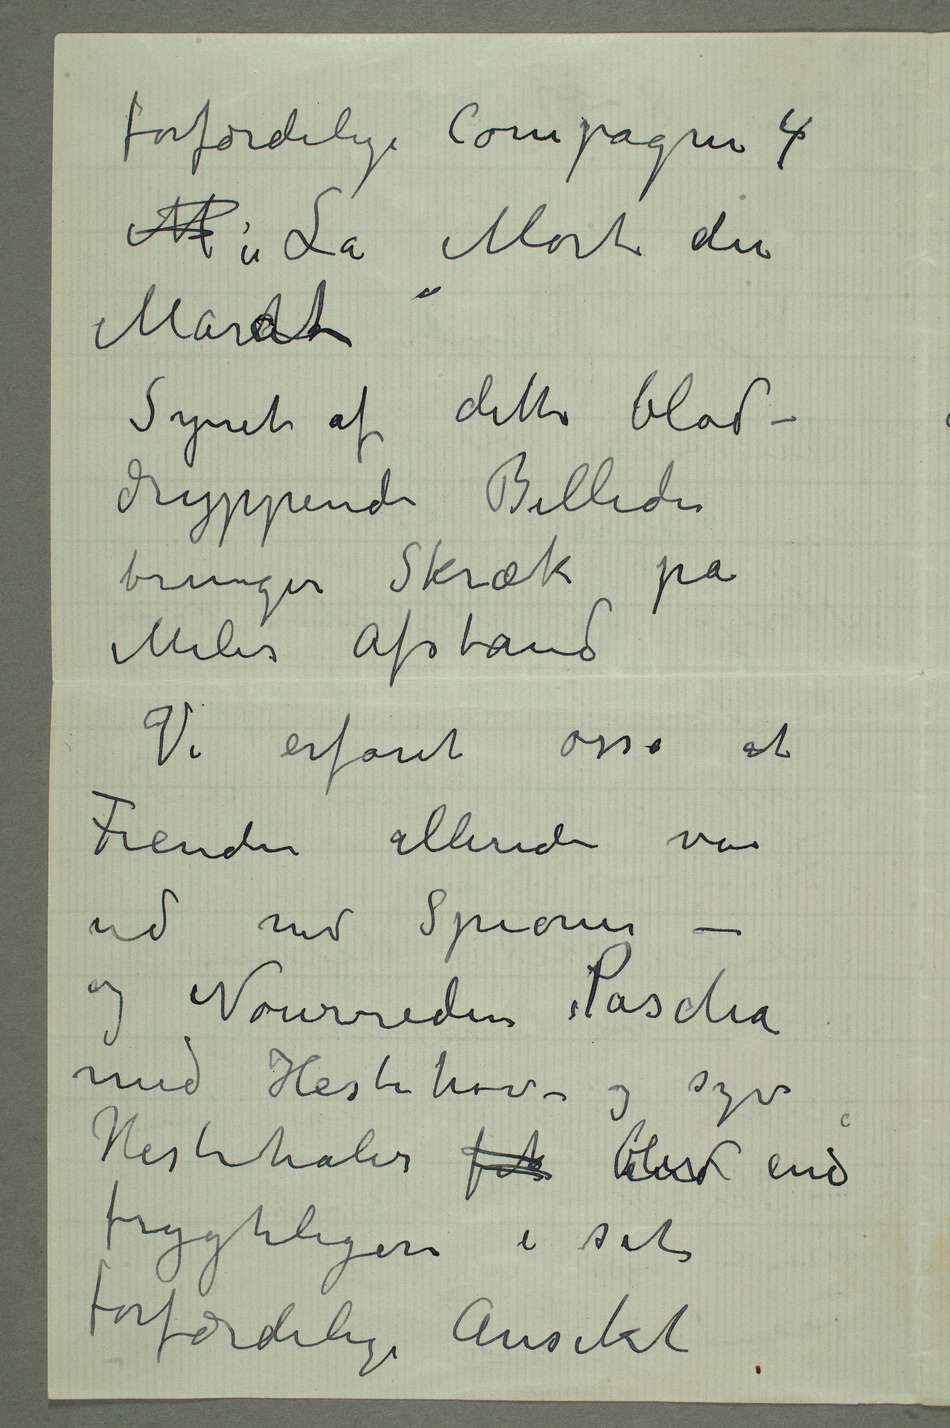 forfærdelige Compagni 4
„La Mort du
Marat“
Synet af dette blod-
dryppende Billede
bringer Skræk på
Miles Afstand
Vi erfaret osså at
Fienden allerede var
ud med Spioner —
og Nourreden Pascha
med Hestehov – og syv
Hestehaler fik blev end
frygteligere i sit
forfærdelige Ansikt